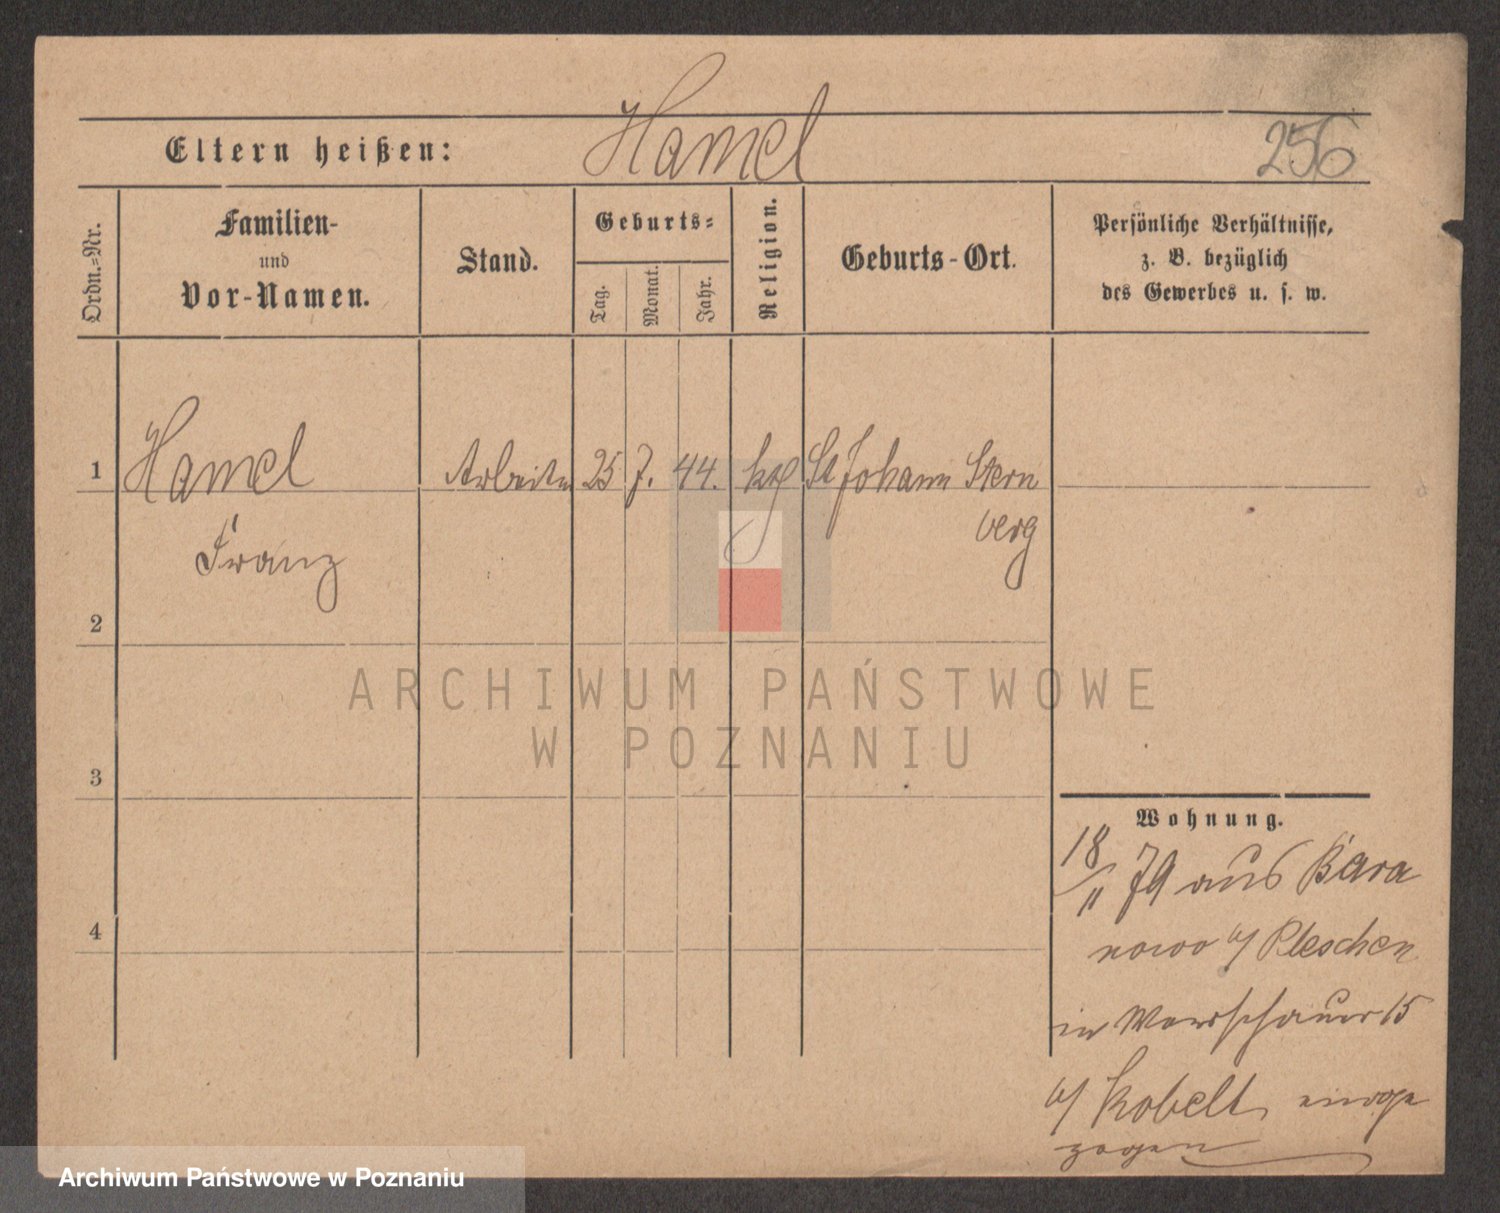 Eltern heißen: Hamel 256
Ordn.=Nr.
Familien-
und
Vor-Namen.
Stand.
Geburts=
Tag.
Monat.
Jahr.
Religion.
Geburts-Ort.
Persönliche Verhältnisse,
z. B. bezüglich
des Gewerbes u. s. w.
1 Hamel Arbeiter 25 7. 44. kth St Johann Stern
berg
Franz
2
3
4
ARCHIWUM PAŃSTWOWE
W POZNANIU
Wohnung.
18/11 79 aus Bara
nowo b/ Pleschen
in Warschauer 15
b/ Kobelt einge
zogen
Archiwum Państwowe w Poznaniu